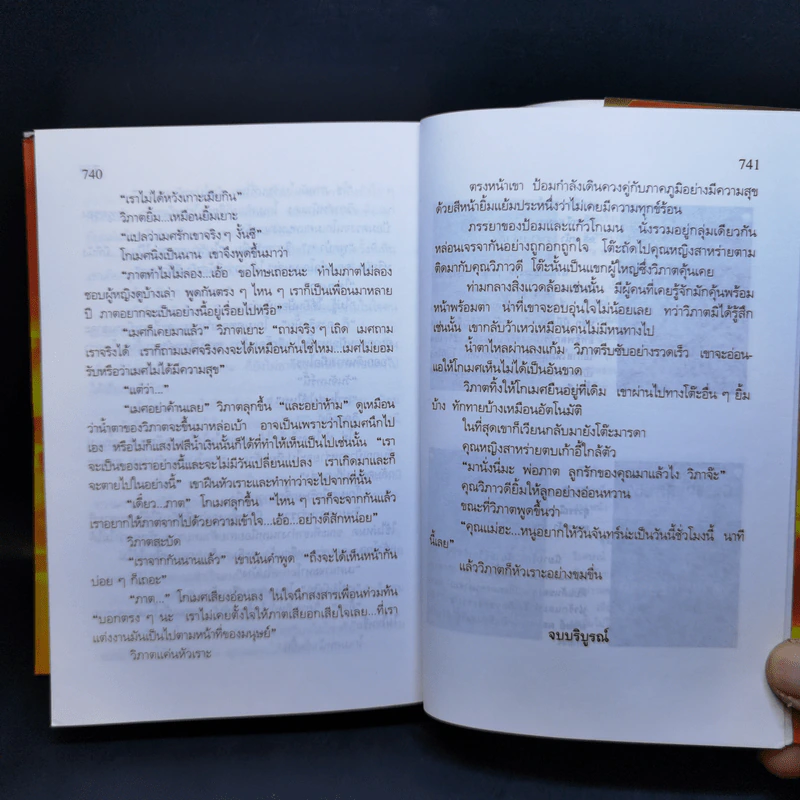 740
“เราไม่ได้หวังเกาะเมียกิน”
วิภาตยิ้ม...เหมือนยิ้มเยาะ
“แปลว่าเมศรักเขาจริง ๆ งั้นซี”
โกเมศนิ่งเป็นนาน เขาจึงพูดขึ้นมาว่า
“ภาตทำไมไม่ลอง...เอ้อ ขอโทษเถอะนะ ทำไมภาตไม่ลอง
ชอบผู้หญิงดูบ้างเล่า พูดกันตรง ๆ ไหน ๆ เราก็เป็นเพื่อนมาหลาย
ปี ภาตอยากจะเป็นอย่างนี้อยู่เรื่อยไปหรือ”
“เมศก็เคยมาแล้ว” วิภาตเยาะ “ถามจริง ๆ เถิด เมศถาม
เราจริงได้ เราก็ถามเมศจริงคงจะได้เหมือนกันใช่ไหม...เมศไม่ยอม
รับหรือว่าเมศไม่ได้มีความสุข”
“แต่ว่า...”
“เมศอย่าค้านเลย” วิภาตลุกขึ้น “และอย่าห้าม” ดูเหมือน
ว่าน้ำตาของวิภาตจะขึ้นมาหล่อเบ้า อาจเป็นเพราะว่าโกเมศนึกไป
เอง หรือไม่ก็แสงไฟสีน้ำเงินนั้นก็ได้ที่ทำให้เห็นเป็นไปเช่นนั้น “เรา
จะเป็นของเราอย่างนี้และจะไม่มีวันเปลี่ยนแปลง เราเกิดมาและก็
จะตายไปในอย่างนี้” เขาฝืนหัวเราะและทำท่าว่าจะไปจากที่นั้น
“เดี๋ยว...ภาต” โกเมศลุกขึ้น “ไหน ๆ เราก็จะจากกันแล้ว
เราอยากให้ภาตจากไปด้วยความเข้าใจ...เอ้อ...อย่างดีสักหน่อย”
วิภาตสะบัด
“เราจากกันนานแล้ว” เขาเน้นคำพูด “ถึงจะได้เห็นหน้ากัน
บ่อย ๆ ก็เถอะ”
“ภาต...” โกเมศเสียงอ่อนลง ในใจนึกสงสารเพื่อนท่วมท้น
“บอกตรง ๆ นะ เราไม่เคยตั้งใจให้ภาตเสียอกเสียใจเลย...ที่เรา
แต่งงานมันเป็นไปตามหน้าที่ของมนุษย์”
วิภาตแค่นหัวเราะ
741
ตรงหน้าเขา ป้อมกำลังเดินควงคู่กับภาคภูมิอย่างมีความสุข
ด้วยสีหน้ายิ้มแย้มประหนึ่งว่าไม่เคยมีความทุกข์ร้อน
ภรรยาของป้อมและแก้วโกเมน นั่งรวมอยู่กลุ่มเดียวกัน
หล่อนเจรจากันอย่างถูกอกถูกใจ โต๊ะถัดไปคุณหญิงสาหร่ายตาม
ติดมากับคุณวิภาวดี โต๊ะนั้นเป็นแขกผู้ใหญ่ซึ่งวิภาตคุ้นเคย
ท่ามกลางสิ่งแวดล้อมเช่นนั้น มีผู้คนที่เคยรู้จักมักคุ้นพร้อม
หน้าพร้อมตา น่าที่เขาจะอบอุ่นใจไม่น้อยเลย ทว่าวิภาตมิได้รู้สึก
เช่นนั้น เขากลับว้าเหว่เหมือนคนไม่มีหนทางไป
น้ำตาไหลผ่านลงแก้ม วิภาตรีบซับอย่างรวดเร็ว เขาจะอ่อน-
แอให้โกเมศเห็นไม่ได้เป็นอันขาด
วิภาตทิ้งให้โกเมศยืนอยู่ที่เดิม เขาผ่านไปทางโต๊ะอื่น ๆ ยิ้ม
บ้าง ทักทายบ้างเหมือนอัตโนมัติ
ในที่สุดเขาก็เวียนกลับมายังโต๊ะมารดา
คุณหญิงสาหร่ายตบเก้าอี้ใกล้ตัว
“มานั่งนี่มะ พ่อภาต ลูกรักของคุณมาแล้วไง วิภาจ๊ะ”
คุณวิภาวดียิ้มให้ลูกอย่างอ่อนหวาน
ขณะที่วิภาตพูดขึ้นว่า
“คุณแม่ฮะ...หนูอยากให้วันจันทร์น่ะเป็นวันนี้ชั่วโมงนี้ นาที
นี้เลย”
แล้ววิภาตก็หัวเราะอย่างขมขื่น
จบบริบูรณ์